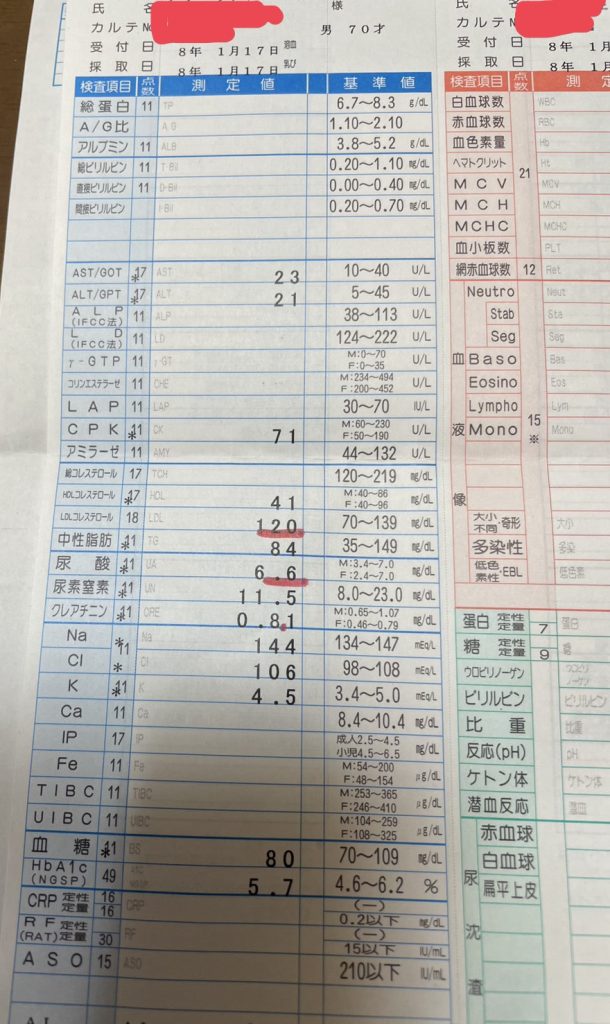 氏 名 様
カルテNo. 男 70才
受付日 8年 1月17日
採取日 8年 1月17日
検査項目 点数 測定値 基準値
総蛋白 11 TP 6.7〜8.3 g/dL
A/G比 A/G 1.10〜2.10
アルブミン 11 ALB 3.8〜5.2 g/dL
総ビリルビン 11 T-Bil 0.20〜1.10 mg/dL
直接ビリルビン 11 D-Bil 0.00〜0.40 mg/dL
間接ビリルビン I-Bil 0.20〜0.70 mg/dL
AST/GOT *17 AST 23 10〜40 U/L
ALT/GPT *17 ALT 21 5〜45 U/L
ALP (IFCC法) 11 ALP 38〜113 U/L
LD (IFCC法) 11 LD 124〜222 U/L
γ-GTP 11 γ-GT M:0〜70 F:0〜35 U/L
コリンエステラーゼ 11 CHE M:234〜494 F:200〜452 U/L
LAP 11 LAP 30〜70 IU/L
CPK *11 CK 71 M:60〜230 F:50〜190 U/L
アミラーゼ 11 AMY 44〜132 U/L
総コレステロール 17 TCH 120〜219 mg/dL
HDLコレステロール *17 HDL 41 M:40〜86 F:40〜96 mg/dL
LDLコレステロール 18 LDL 120 70〜139 mg/dL
中性脂肪 *11 TG 84 35〜149 mg/dL
尿酸 *11 UA 6.6 M:3.4〜7.0 F:2.4〜7.0 mg/dL
尿素窒素 *11 UN 11.5 8.0〜23.0 mg/dL
クレアチニン *11 CRE 0.81 M:0.65〜1.07 F:0.46〜0.79 mg/dL
Na * 11 Na 144 134〜147 mEq/L
Cl * Cl 106 98〜108 mEq/L
K *11 K 4.5 3.4〜5.0 mEq/L
Ca 11 Ca 8.4〜10.4 mg/dL
IP 17 IP 成人2.5〜4.5 小児4.5〜6.5 mg/dL
Fe 11 Fe M:54〜200 F:48〜154 μg/dL
TIBC 11 TIBC M:253〜365 F:246〜410 μg/dL
UIBC 11 UIBC M:104〜259 F:108〜325 μg/dL
血糖 *11 BS 80 70〜109 mg/dL
HbA1c (NGSP) 49 5.7 4.6〜6.2 %
CRP 定性 16 定量 16 CRP (ー) 0.2以下 mg/dL
RF 定性 (RAT)定量 30 RF (ー) 15以下 IU/mL
ASO 15 ASO 210以下 IU/mL
氏
カルテNo.
受付日 8年 1
採取日 8年 1
検査項目 点数 測定
白血球数 WBC
赤血球数 RBC
血色素量 Hb
ヘマトクリット Ht
MCV 21 MCV
MCH MCH
MCHC MCHC
血小板数 PLT
網赤血球数 12 Ret
血液像 15 ※
Neutro Neut
Stab Sta
Seg Seg
Baso Bas
Eosino Eos
Lympho Lym
Mono Mono
大小不同・奇形 大小
多染性 多染
低色素性・EBL 低色素
蛋白 定性 定量 7 蛋白
糖 定性 定量 9 糖
ウロビリノーゲン ウロビリノーゲン
ビリルビン ビリルビン
比重 比重
反応(pH) pH
ケトン体 ケトン体
潜血反応 潜血
尿沈渣
赤血球
白血球
扁平上皮